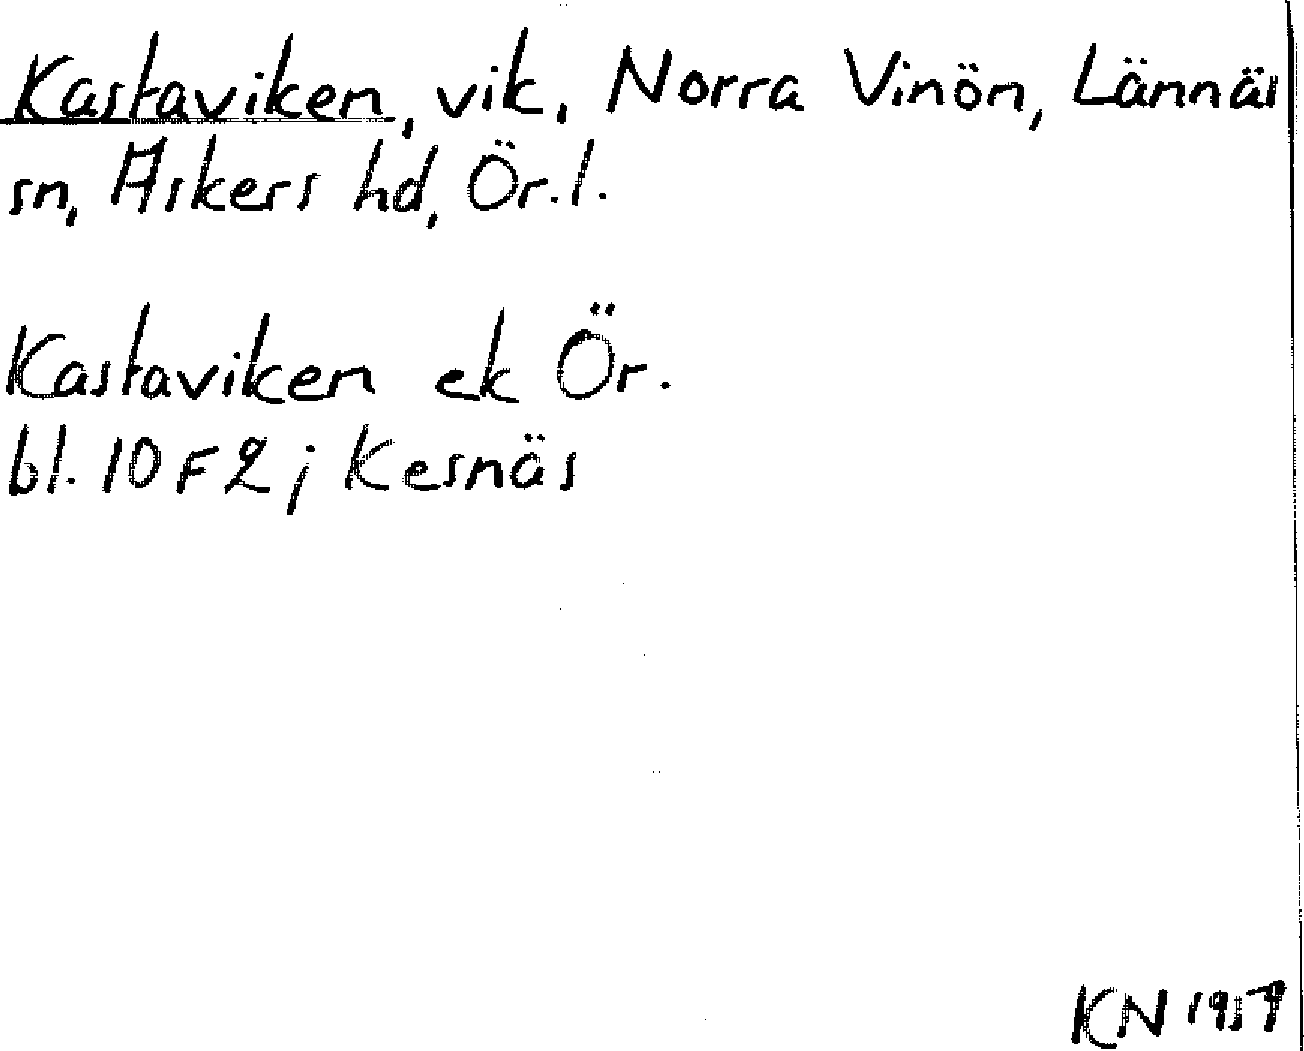 Kastaviken, vik, Norra Vinön, Lännäs
sn, Askers hd, Ör.l.
Kastaviken ek Ör.
bl. 10F2j Kesnäs
KN